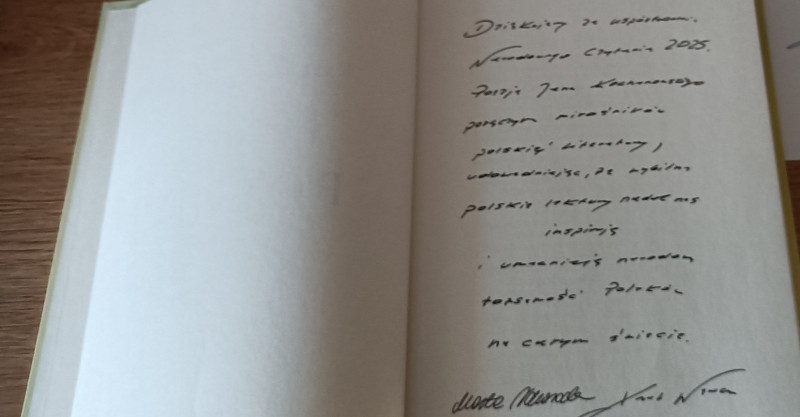 Dziękujemy za współtworz.
Narodowego Czytania 2025.
Poezja Jana Kochanowskiego
połączyła miłośników
polskiej literatury,
udowadniając, że wybitne
polskie lektury nadal nas
inspirują
i umacniają narodową
tożsamość Polaków
na całym świecie.
Marta Nawrocka